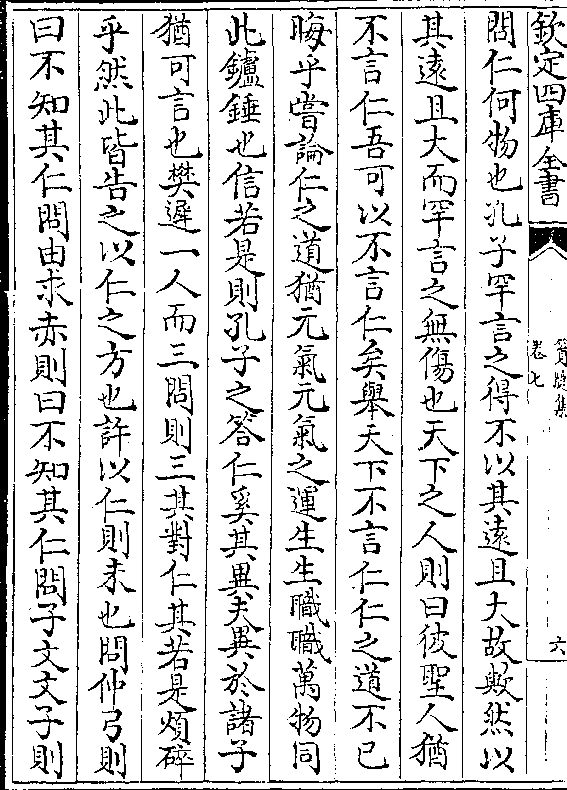 欽定四庫全書
篔牕集
卷七
六
問仁何物也孔子罕言之得不以其遠且大故歟然以
其遠且大而罕言之無傷也天下之人則曰彼聖人猶
不言仁吾可以不言仁矣舉天下不言仁仁之道不已
晦乎嘗論仁之道猶元氣元氣之運生生職職萬物同
此鑪錘也信若是則孔子之答仁奚其異夫異於諸子
猶可言也樊遲一人而三問則三其對仁其若是煩碎
乎然此皆告之以仁之方也許以仁則未也問仲弓則
曰不知其仁問由求赤則曰不知其仁問子文文子則